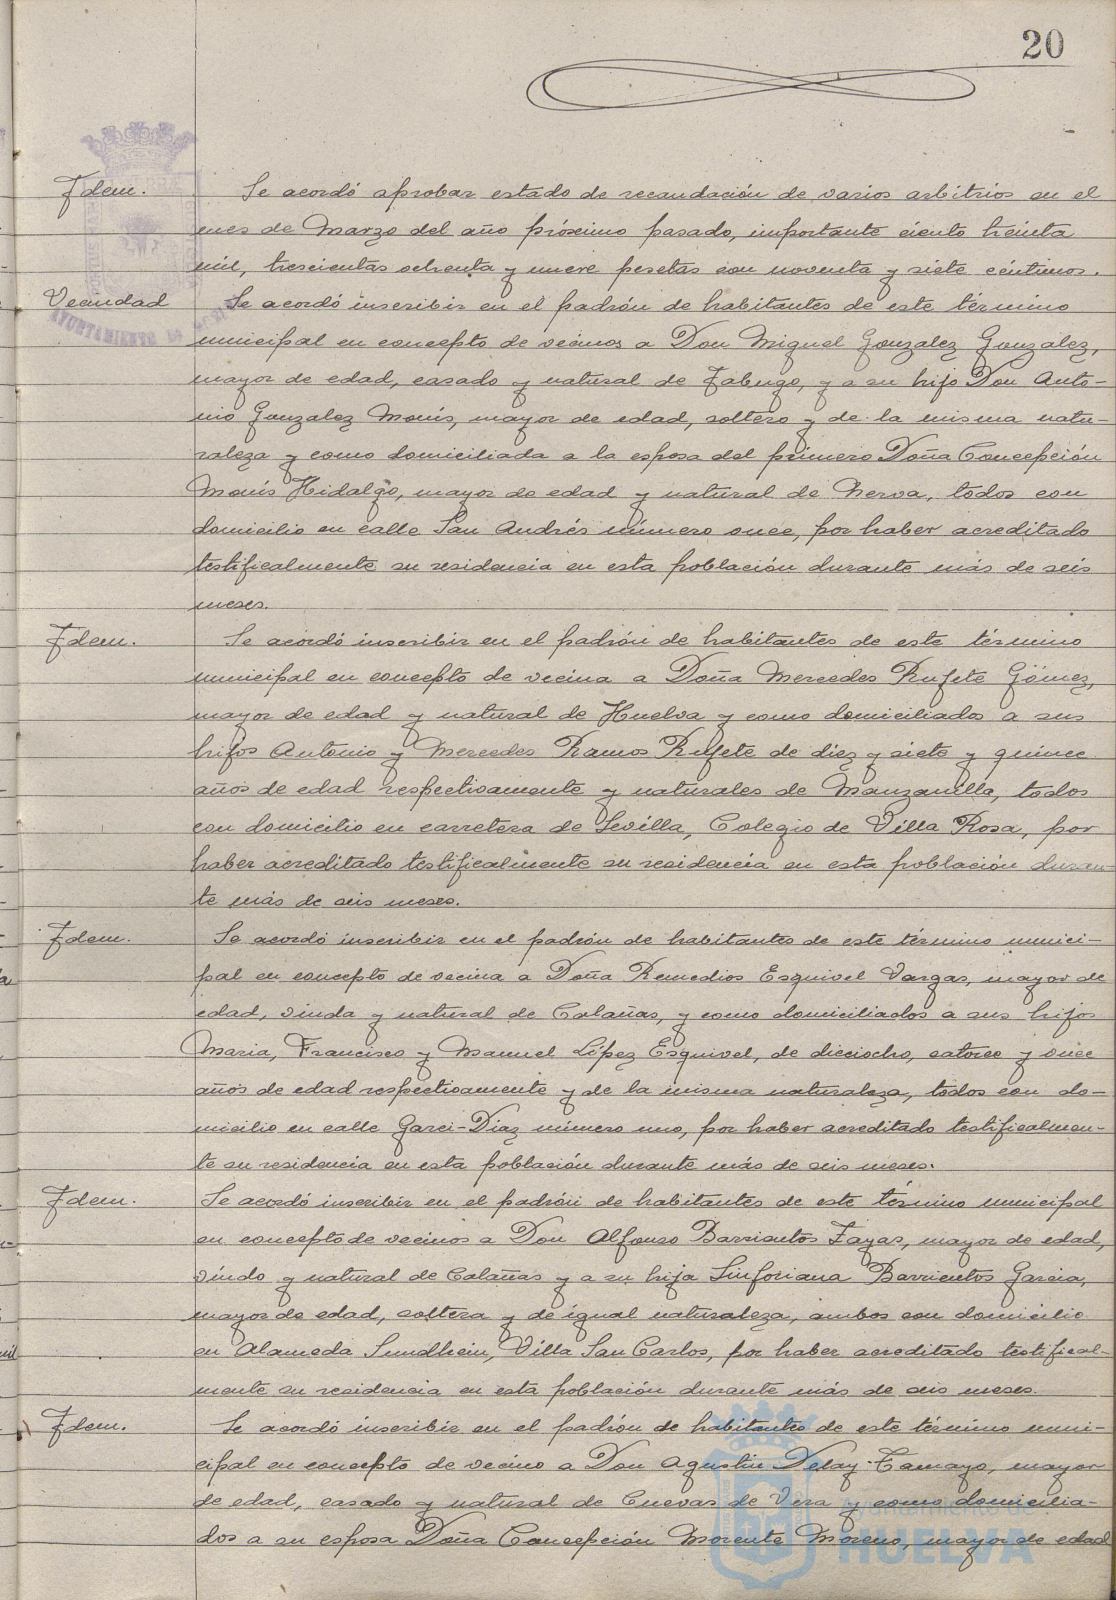 20
Idem. Se acordó aprobar estado de recaudación de varios arbitrios en el
mes de Marzo del año próximo pasado, importante ciento treinta
mil, trescientas ochenta y nueve pesetas con noventa y siete céntimos.
Vecindad Se acordó inscribir en el padrón de habitantes de este término
municipal en concepto de vecinos a Don Miguel Gonzalez Gonzalez,
mayor de edad, casado y natural de Jabugo, y a su hijo Don Anto-
nio Gonzalez Monís, mayor de edad, soltero y de la misma natu-
raleza y como domiciliada a la esposa del primero Doña Concepción
Monís Hidalgo, mayor de edad y natural de Nerva, todos con
domicilio en calle San Andrés número once, por haber acreditado
testificalmente su residencia en esta población durante más de seis
meses.
Idem. Se acordó inscribir en el padrón de habitantes de este término
municipal en concepto de vecina a Doña Mercedes Rufete Gómez,
mayor de edad y natural de Huelva y como domiciliados a sus
hijos Antonio y Mercedes Ramos Rufete de diez y siete y quince
años de edad respectivamente y naturales de Manzanilla, todos
con domicilio en carretera de Sevilla, Colegio de Villa Rosa, por
haber acreditado testificalmente su residencia en esta población duran-
te más de seis meses.
Idem. Se acordó inscribir en el padrón de habitantes de este término munici-
pal en concepto de vecina a Doña Remedios Esquivel Vargas, mayor de
edad, viuda y natural de Calañas, y como domiciliados a sus hijos
Maria, Francisco y Manuel López Esquivel, de dieciocho, catorce y once
años de edad respectivamente y de la misma naturaleza, todos con do-
micilio en calle Garci-Diaz número uno, por haber acreditado testificalmen-
te su residencia en esta población durante más de seis meses.
Idem. Se acordó inscribir en el padrón de habitantes de este término municipal
en concepto de vecinos a Don Alfonso Barrientos Zayas, mayor de edad,
viudo y natural de Calañas y a su hija Sinforiana Barrientos Garcia,
mayor de edad, soltera y de igual naturaleza, ambos con domicilio
en Alameda Sundhein, Villa San Carlos, por haber acreditado testifical-
mente su residencia en esta población durante más de seis meses.
Idem. Se acordó inscribir en el padrón de habitantes de este término muni-
cipal en concepto de vecino a Don Agustin Delay Tamayo, mayor
de edad, casado y natural de Cuevas de Vera y como domicilia-
dos a su esposa Doña Concepción Morente Moreno, mayor de edad
AYUNTAMIENTO DE
Ayuntamiento de
HUELVA